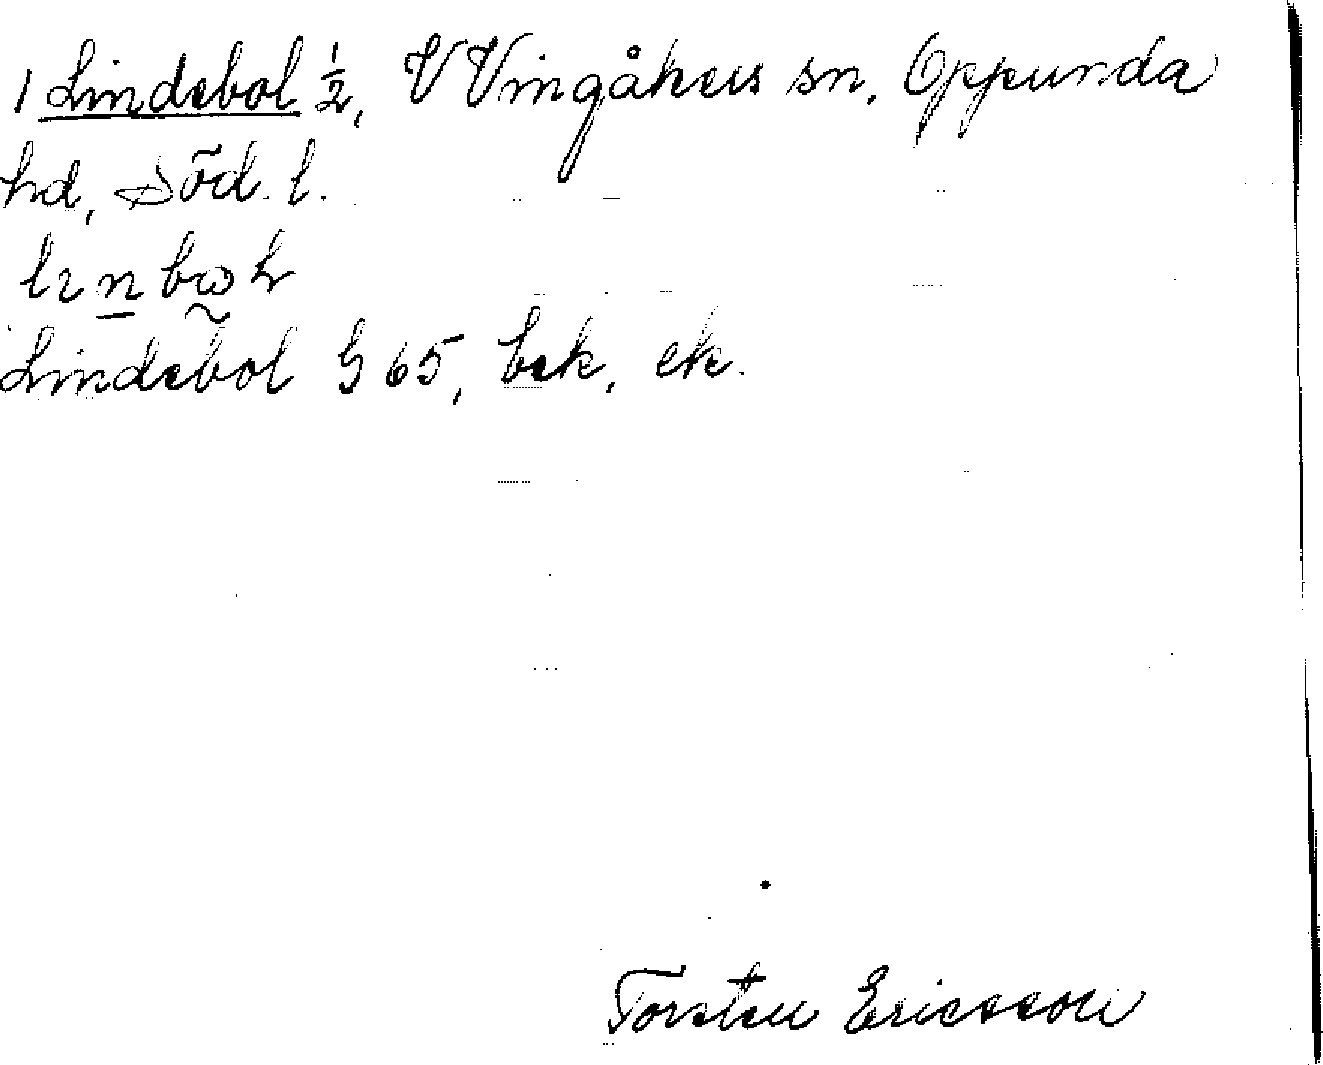 1 Lindebol ½, V Vingåkers sn, Oppunda
hd, Söd. l.
Lindebol G 65, bek, ek.
Torsten Ericsson